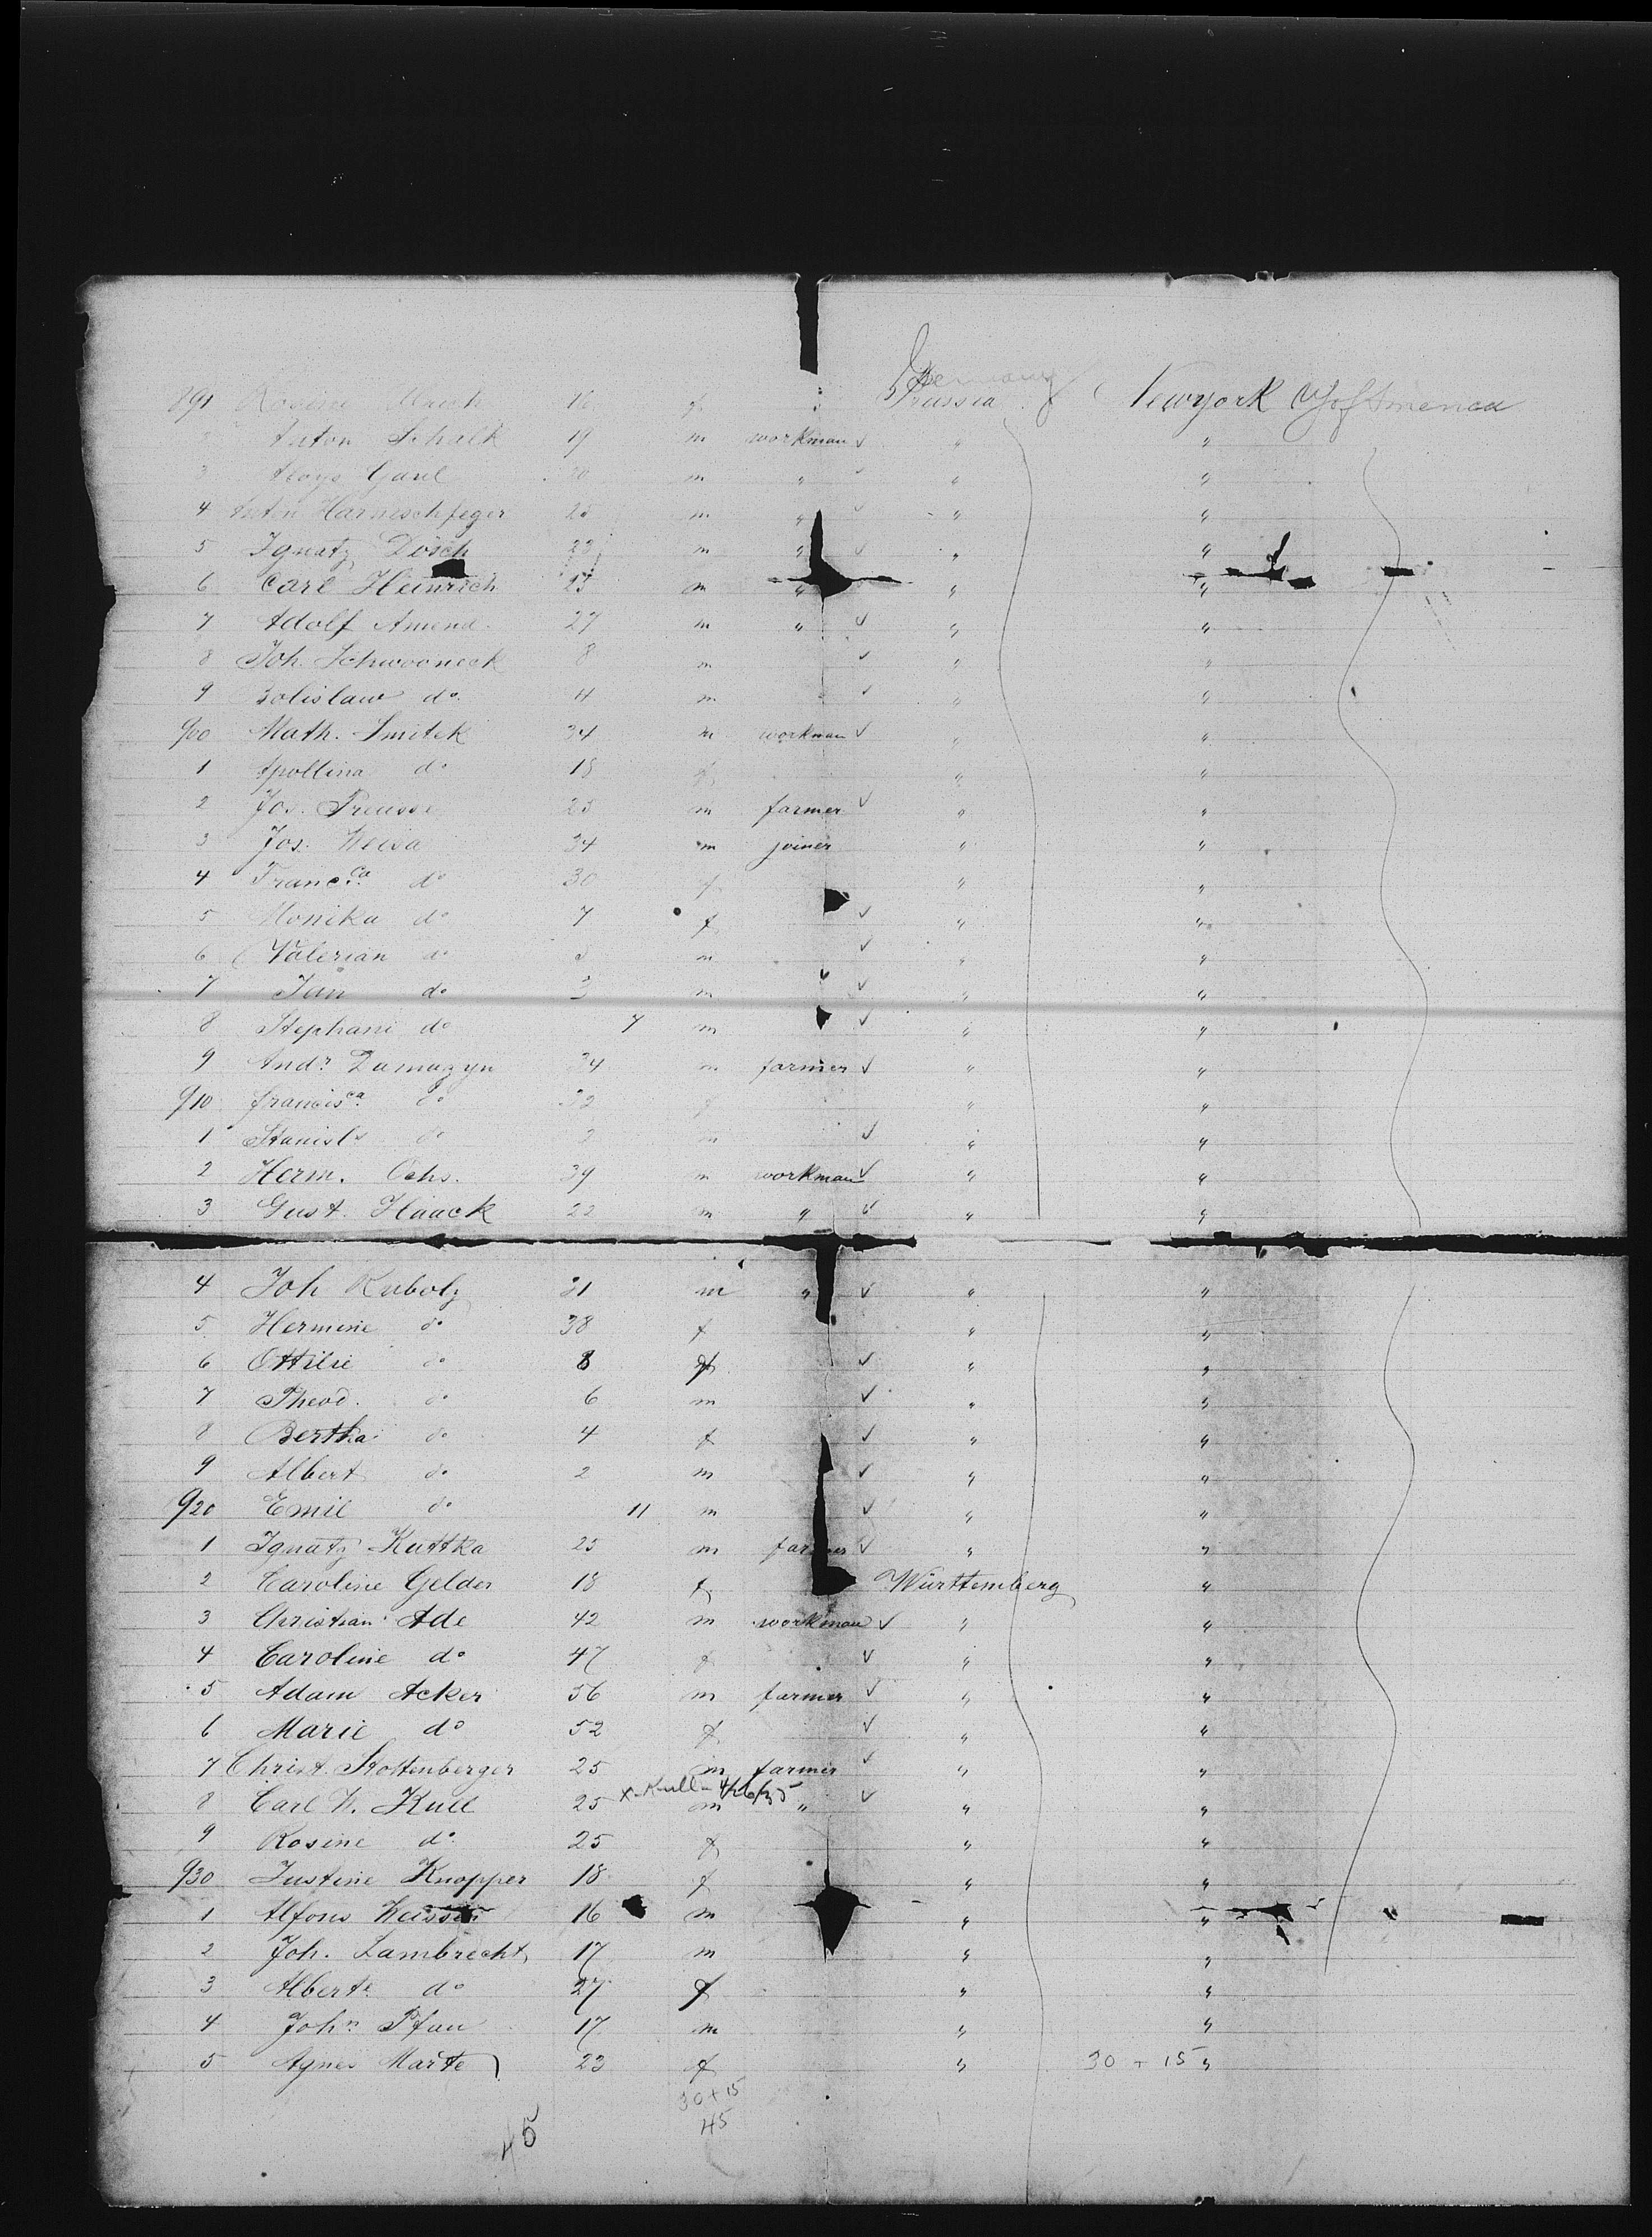 Germany
891 Rosine 16 f Prussia Newyork U S of America
2 Anton Schalk 19 m workman ✓ " "
3 Aloys Gaul 20 m " ✓ " "
4 Anton Harnischfeger 25 m " ✓ " "
5 Ignatz Dosch 23 m " ✓ " "
6 Carl Heinrich 25 m " " "
7 Adolf Amend 27 m " ✓ " "
8 Joh. Schwooneck 8 m ✓ " "
9 Bolislaw do 4 m ✓ " "
900 Math. Smitek 34 m workman ✓ " "
1 Apollina do 18 f " "
2 Jos. Preusse 23 m farmer ✓ " "
3 Jos. Weisa 34 m joiner " "
4 Franc.ca do 30 f " "
5 Monika do 7 f ✓ " "
6 Valerian do m ✓ " "
7 Jan do 3 m ✓ " "
8 Stephani do 7 m ✓ " "
9 Andr. Damazyn 34 m farmer ✓ " "
910 Francisca do 32 f " "
1 Stanisl. do 3 m ✓ " "
2 Herm. Ochs. 39 m workman ✓ " "
3 Gust. Haack 22 m " ✓ " "
4 Joh Kubolz 31 m " ✓ " "
5 Hermine do 38 f " "
6 Ottilie do 8 f ✓ " "
7 Theod. do 6 m ✓ " "
8 Bertha do 4 f ✓ " "
9 Albert do 2 m ✓ " "
920 Emil do 11 m ✓ " "
1 Ignatz Kuttka 25 m farmer ✓ " "
2 Caroline Gelder 18 f Württemberg "
3 Christian Ade 42 m workman ✓ " "
4 Caroline do 47 f ✓ " "
5 Adam Acker 56 m farmer ✓ " "
6 Marie do 52 f ✓ " "
7 Christ. Stottenberger 25 m farmer ✓ " "
x-Kull- 4/26/35
8 Carl W. Kull 25 m " ✓ " "
9 Rosine do 25 f " "
930 Justine Knapper 18 f " "
1 Alfons 16 m " "
2 Joh. Lambrecht 17 m " "
3 Alberte do 27 f " "
4 John Pfau 17 m " "
5 Agnes Marte 23 f " 30 + 15 "
30 + 15
45
45